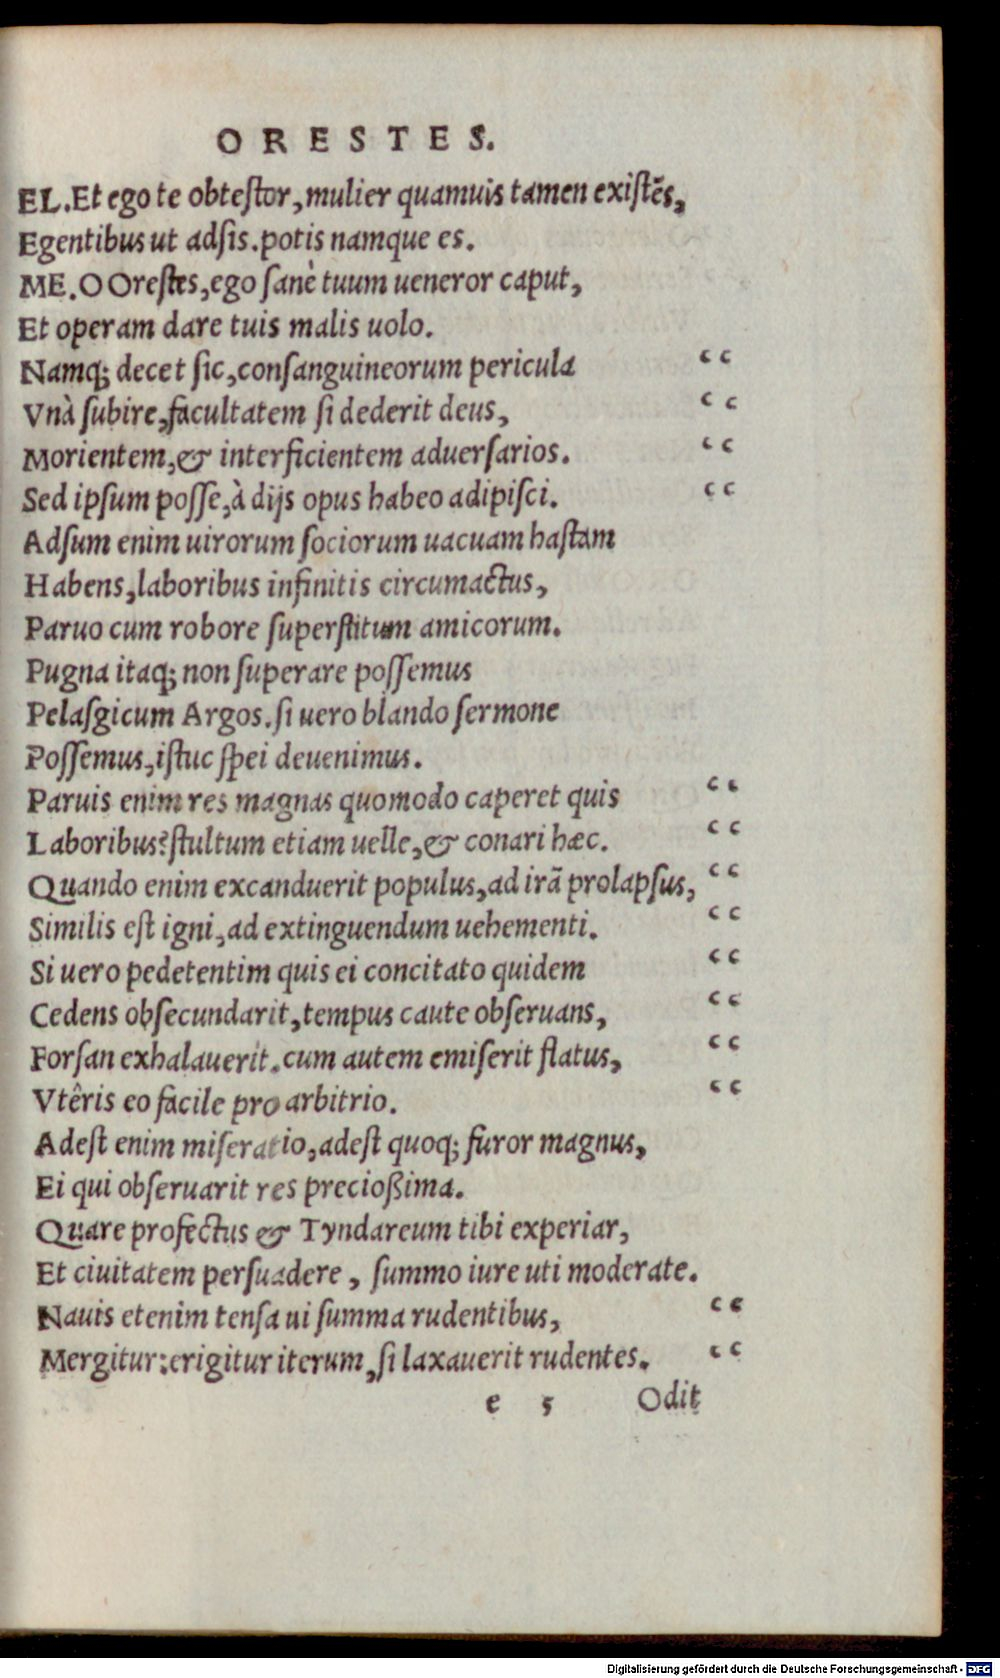 ORESTES.
EL. Et ego te obtestor, mulier quamuis tamen existẽs,
Egentibus ut adsis. potis namque es.
ME. O Orestes, ego sanè tuum ueneror caput,
Et operam dare tuis malis uolo.
Namq; decet sic, consanguineorum pericula “
Vnà subire, facultatem si dederit deus, “
Morientem, & interficientem aduersarios. “
Sed ipsum posse, à dijs opus habeo adipisci. “
Adsum enim uirorum sociorum uacuam hastam
Habens, laboribus infinitis circumactus,
Paruo cum robore superstitum amicorum.
Pugna itaq; non superare possemus
Pelasgicum Argos. si uero blando sermone
Possemus, istuc spei deuenimus.
Paruis enim res magnas quomodo caperet quis “
Laboribus? stultum etiam uelle, & conari hæc. “
Quando enim excanduerit populus, ad irã prolapsus, “
Similis est igni, ad extinguendum uehementi. “
Si uero pedetentim quis ei concitato quidem “
Cedens obsecundarit, tempus caute obseruans, “
Forsan exhalauerit. cum autem emiserit flatus, “
Vtêris eo facile pro arbitrio. “
Adest enim miseratio, adest quoq; furor magnus,
Ei qui obseruarit res precioßima.
Quare profectus & Tyndareum tibi experiar,
Et ciuitatem persuadere, summo iure uti moderate.
Nauis etenim tensa ui summa rudentibus, “
Mergitur: erigitur iterum, si laxauerit rudentes. “
e 5 Odit
Digitalisierung gefördert durch die Deutsche Forschungsgemeinschaft - DFG